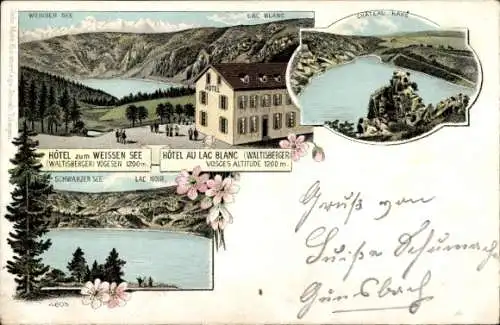 WEISSER SEE
LAC BLANC
CHÂTEAU HANS
HÔTEL
HÔTEL ZUM WEISSEN SEE
(WALTISBERGER) VOGESEN 1200 m.
HÔTEL AU LAC BLANC (WALTISBERGER)
VOSGES ALTITUDE 1200 m.
SCHWARZER SEE
LAC NOIR.
Gruß von
Luise Schumacher
Gunsbach
4603